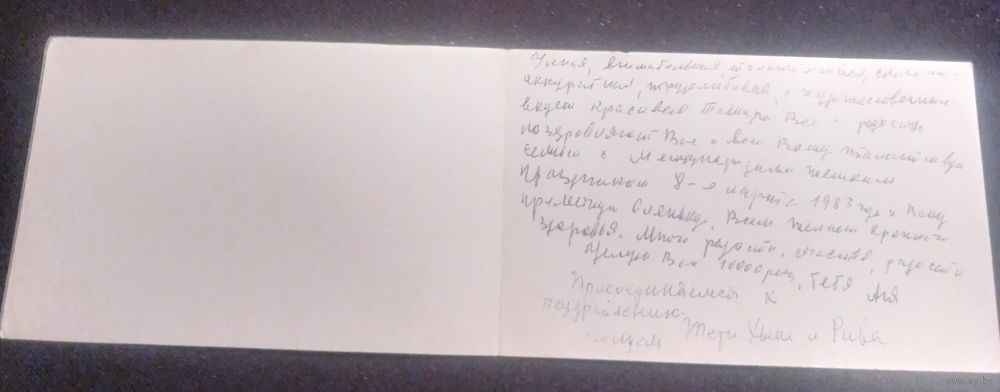 Умная, внимательная,
аккуратная, трудолюбивая, с художественным
вкусом красивая Тамара Вас с радостью
поздравляют Вас и всю Вашу
семью с Международным женским
праздником 8-е марта 1983 года и Вашу
прелестную Оленьку. Всем желаю крепкого
здоровья. Много радости, счастья, радости
Целую Вас 10000 раз, тетя Аня
Присоединяемся к
поздравлению.
целуем Тети и Рива
www.ay.by